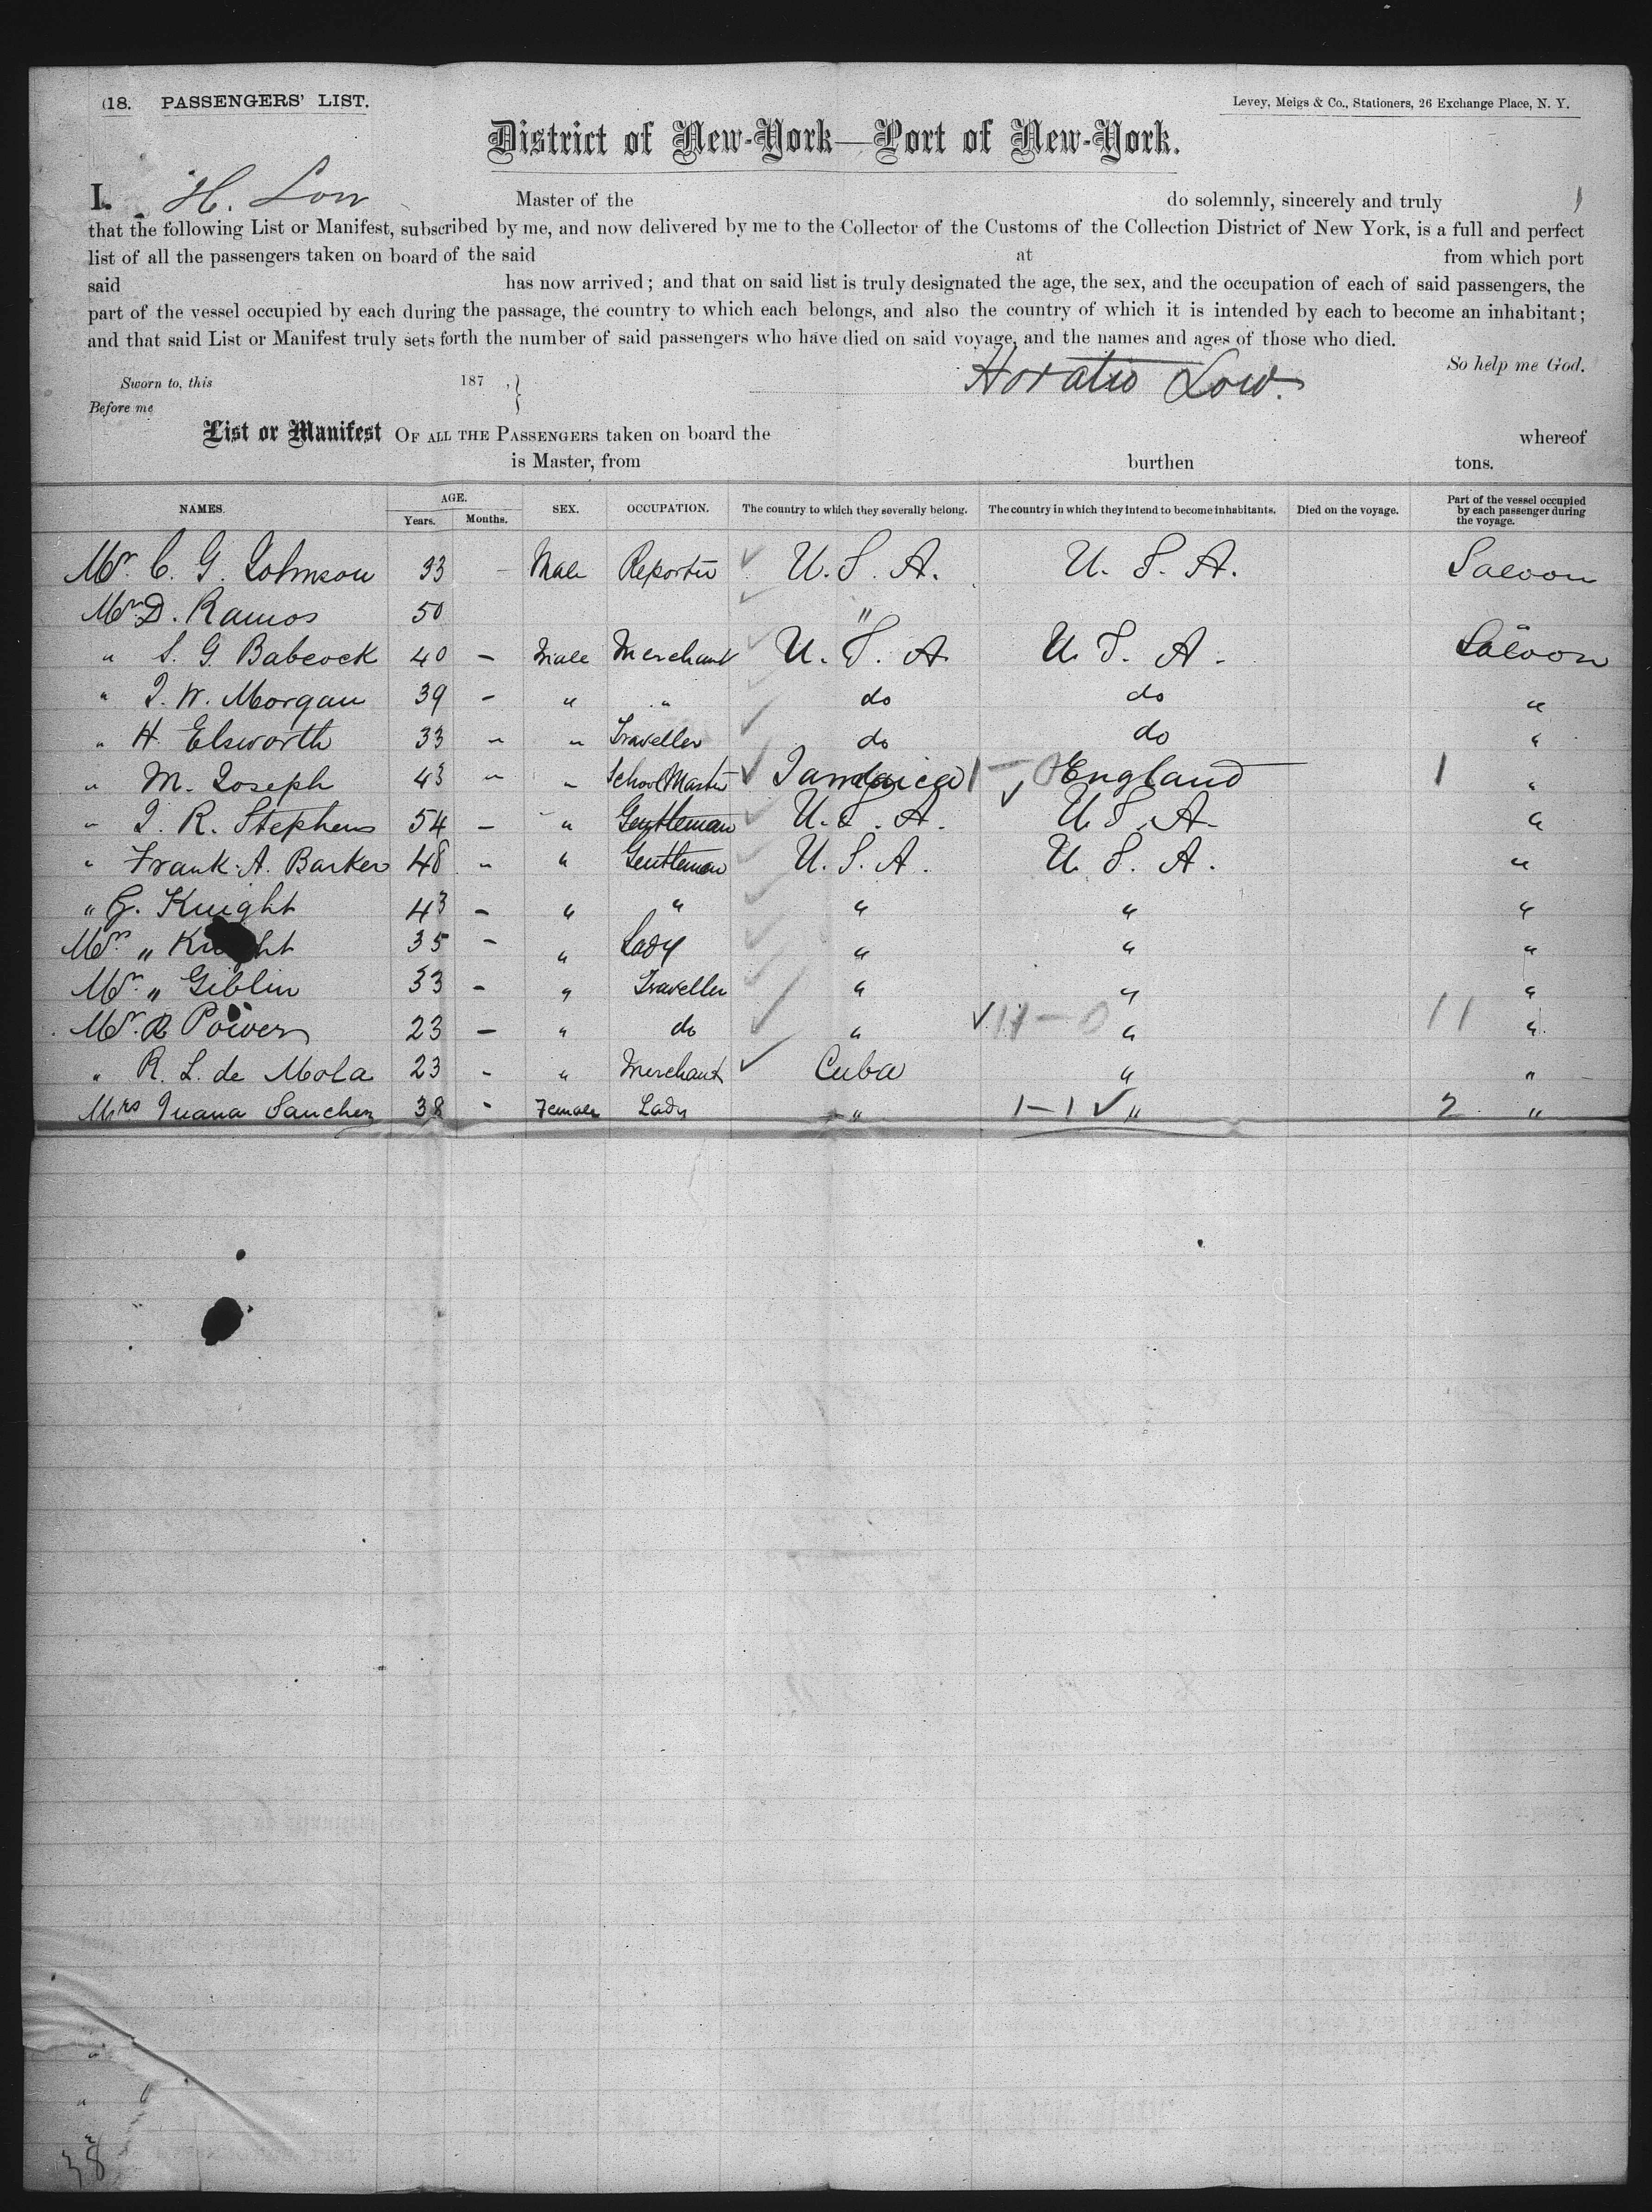 (18. PASSENGERS' LIST.
Levey, Meigs & Co., Stationers, 26 Exchange Place, N. Y.
District of New-York—Port of New-York.
I. H. Low Master of the do solemnly, sincerely and truly
that the following List or Manifest, subscribed by me, and now delivered by me to the Collector of the Customs of the Collection District of New York, is a full and perfect
list of all the passengers taken on board of the said at from which port
said has now arrived; and that on said list is truly designated the age, the sex, and the occupation of each of said passengers, the
part of the vessel occupied by each during the passage, the country to which each belongs, and also the country of which it is intended by each to become an inhabitant;
and that said List or Manifest truly sets forth the number of said passengers who have died on said voyage, and the names and ages of those who died.
So help me God.
Sworn to, this 187 , } Horatio Low.
Before me
List or Manifest OF ALL THE PASSENGERS taken on board the whereof
is Master, from burthen tons.
NAMES. AGE. Years. Months. SEX. OCCUPATION. The country to which they severally belong. The country in which they intend to become inhabitants. Died on the voyage. Part of the vessel occupied by each passenger during the voyage.
Mr. C. G. Johnson 33 - Male Reporter ✓ U. S. A. U. S. A. Saloon
Mr. D. Ramos 50 ✓ "
" S. G. Babcock 40 - Male Merchant ✓ U. S. A U. S. A. Saloon
" J. W. Morgan 39 - " " do do "
" H. Elsworth 33 - " Traveller ✓ do do "
" M. Joseph 43 - " School Master ✓ Jamaica 1-0 England 1 "
" J. R. Stephens 54 - " Gentleman ✓ U. S. A. ✓ U. S. A. "
" Frank. A. Barker 48 - " Gentleman ✓ U. S. A. U. S. A. "
" G. Knight 43 - " " ✓ " " "
Mrs. " Knight 35 - " Lady ✓ " " "
Mr. " Giblin 33 - " Traveller ✓ " " "
Mr. R Powers 23 - " do ✓ " ✓ 11-0 " 11 "
" R. L. de Mola 23 - " Merchant ✓ Cuba " "
Mrs Juana Sanchez 38 - Female Lady " 1-1 ✓ " 2 "
38